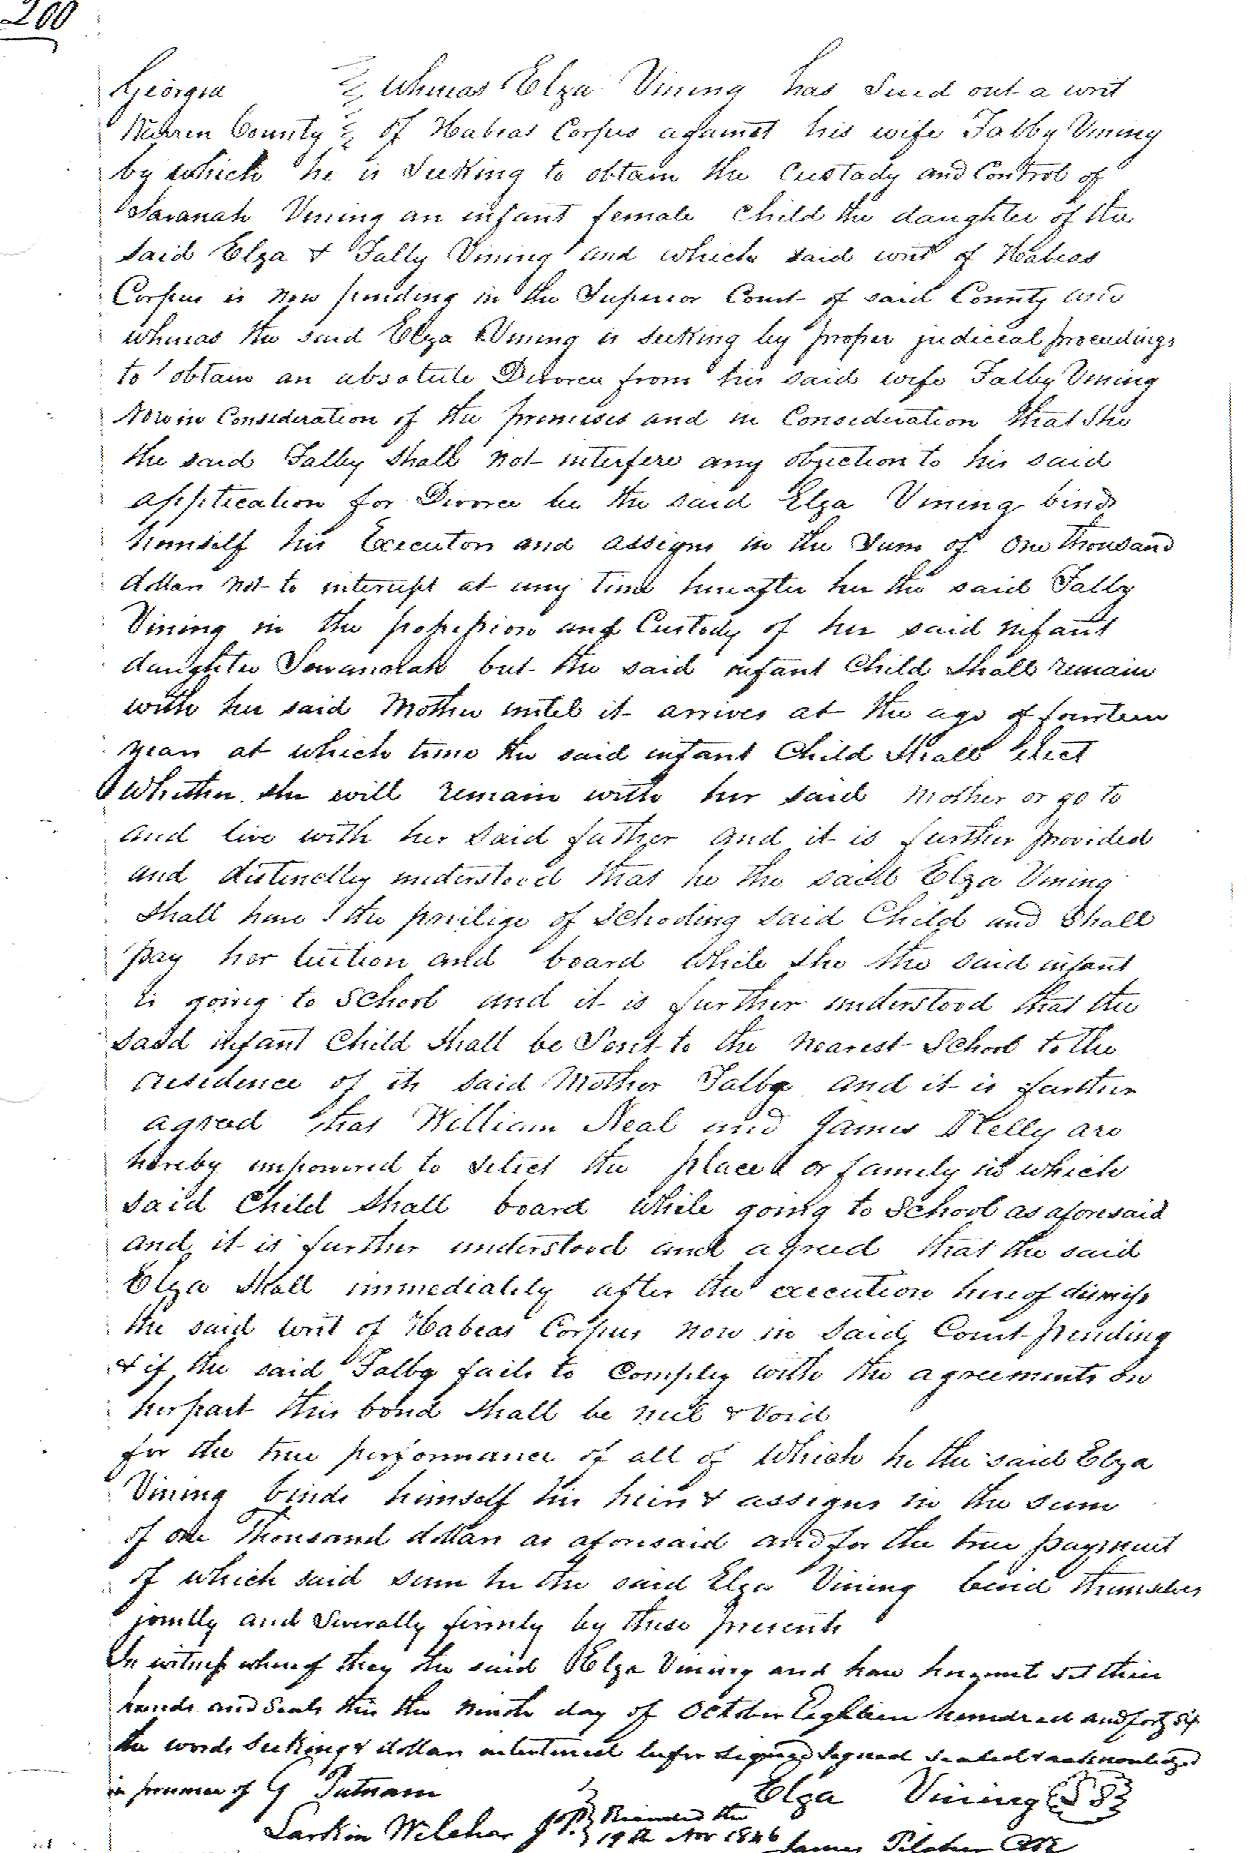 200
Georgia } Whereas Elza Vining has Sued out a writ
Warren County } of Habeas Corpus against his wife Talby Vining
by which he is Seeking to obtain the Custady and Control of
Savanah Vining an infant female Child the daughter of the
said Elza & Talby Vining and which said writ of Habeas
Corpus is now pending in the Superior Court of said County and
whereas the said Elza Vining is seeking by proper judicial proceedings
to obtain an absolute Divorce from his said wife Talby Vining
Now in Consideration of the premises and in Consideration that She
the said Talby Shall not interfere any objection to his said
application for Divorce he the said Elza Vining binds
himself his Executors and assigns in the Sum of One thousand
dollars not to intercept at any time hereafter her the said Talby
Vining in the possession and Custody of her said infant
daughter Sowannah but the said infant Child Shall remain
with her said Mother until it arrives at the age of fourteen
years at which time the said infant Child Shall elect
Whether she will remain with her said Mother or go to
and live with her Said father and it is further provided
and distinctly understood that he the said Elza Vining
Shall have the privilige of Schooling said Child and Shall
pay her tuition and board While she the said infant
is going to School and it is further understood that the
said infant Child Shall be Sent to the nearest School to the
residence of its said Mother Talby and it is further
agreed that William Neal and James Kelly are
hereby impowered to select the place or family in which
said Child Shall board While going to School as aforesaid
and it is further understood and agreed that the said
Elza Shall immediately after the execution hereof dismiss
the said writ of Habeas Corpus now in Said Court pending
& if the said Talby fails to Comply with the agreements on
her part this bond Shall be null & Void
for the true performance of all of Which he the said Elza
Vining binds himself his heirs & assigns in the sum
of one Thousand dollars as aforesaid and for the true payment
of which said sum he the said Elza Vining bind themselves
jointly and Severally firmly by these presents
In witness whereof they the said Elza Vining and have hereunto set their
hands and Seals this the Ninth day of October Eighteen hundred and forty six
the words Seeking & dollars interlined before signed Signed sealed & acknowledged
in presence of G Putnam Elza Vining {LS}
Larkin Wilcher JP. } Recorded the
19th Nov 1846 James Pilcher CSC